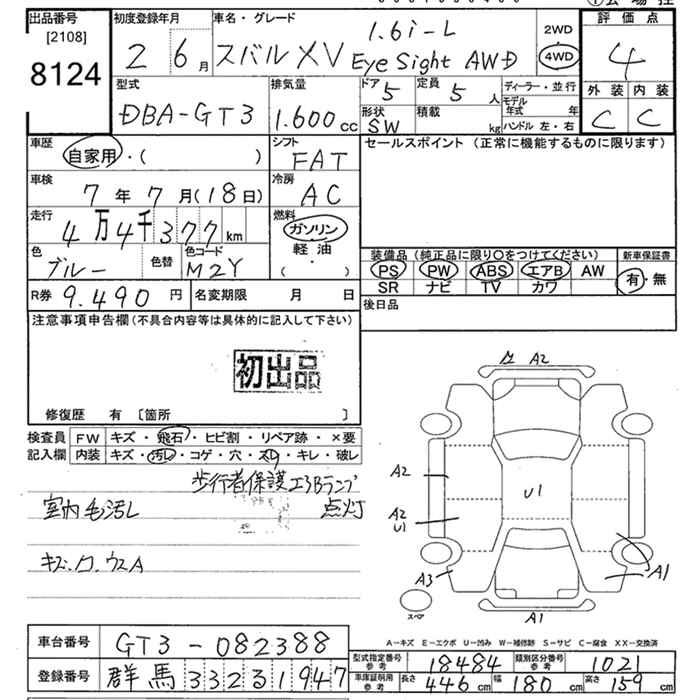 出品番号 [2108] 8124
初度登録年月 2 6月
車名・グレード スバル XV 1.6i-L Eye Sight AWD
2WD
4WD
評価点 4
外装 内装
C C
型式 DBA-GT3
排気量 1.600cc
ドア 5
定員 5人
形状 SW
積載 kg
ディーラー・並行
モデル年式 年
ハンドル 左・右
車歴 自家用・( )
シフト FAT
セールスポイント (正常に機能するものに限ります)
車検 7年7月(18日)
冷房 AC
走行 4万4千377km
燃料 ガソリン
軽油・
( )
色 ブルー 色替
色コード M2Y
装備品 (純正品に限り○をつけてください)
新車保証書
PS PW ABS エアB AW
SR ナビ TV カワ
有・無
R券 9.490円
名変期限 月 日
後日品
注意事項申告欄(不具合内容等は具体的に記入して下さい)
初出品
修復歴 有 〔箇所 〕
検査員記入欄
FW キズ・飛石・ヒビ割・リペア跡・×要
内装 キズ・汚レ・コゲ・穴・スレ・キレ・破レ
歩行者保護エアBランプ
点灯
室内毛汚レ
A2
A2
U1
A2
U1
A3
A1
A1
スペア
A-キズ E-エクボ U-凹み W-補修跡 S-サビ C-腐食 XX-交換済
車台番号 GT3-082388
登録番号 群馬 332 る1947
型式指定番号参考 18484
類別区分番号参考 1021
車庫証明用参考 長さ 446cm 幅 180cm 高さ 159cm